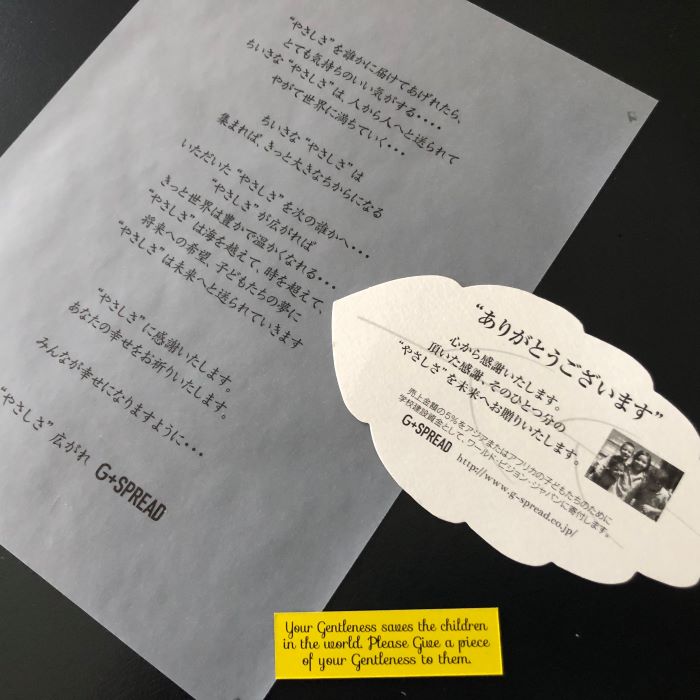 “やさしさ”を誰かに届けてあげれたら、
とても気持ちのいい気がする・・・・
ちいさな“やさしさ”は、人から人へと送られて
やがて世界に満ちていく・・・
ちいさな“やさしさ”は
集まれば、きっと大きなちからになる
いただいた“やさしさ”を次の誰かへ・・・
“やさしさ”が広がれば
きっと世界は豊かで温かくなれる・・・
“やさしさ”は海を越えて、時を超えて、
将来への希望、子どもたちの夢に
“やさしさ”は未来へと送られていきます
“やさしさ”に感謝いたします。
あなたの幸せをお祈りいたします。
みんなが幸せになりますように・・・
“やさしさ”広がれ G+SPREAD
“ありがとうございます”
心から感謝いたします。
頂いた感謝、そのひとつ分の
“やさしさ”を未来へお贈りいたします。
売上金額の5%をアジアまたはアフリカの子どもたちのために
学校建設資金として、ワールド・ビジョン・ジャパンに寄付します。
G+SPREAD http://www.g-spread.co.jp/
Your Gentleness saves the children
in the world. Please Give a piece
of your Gentleness to them.